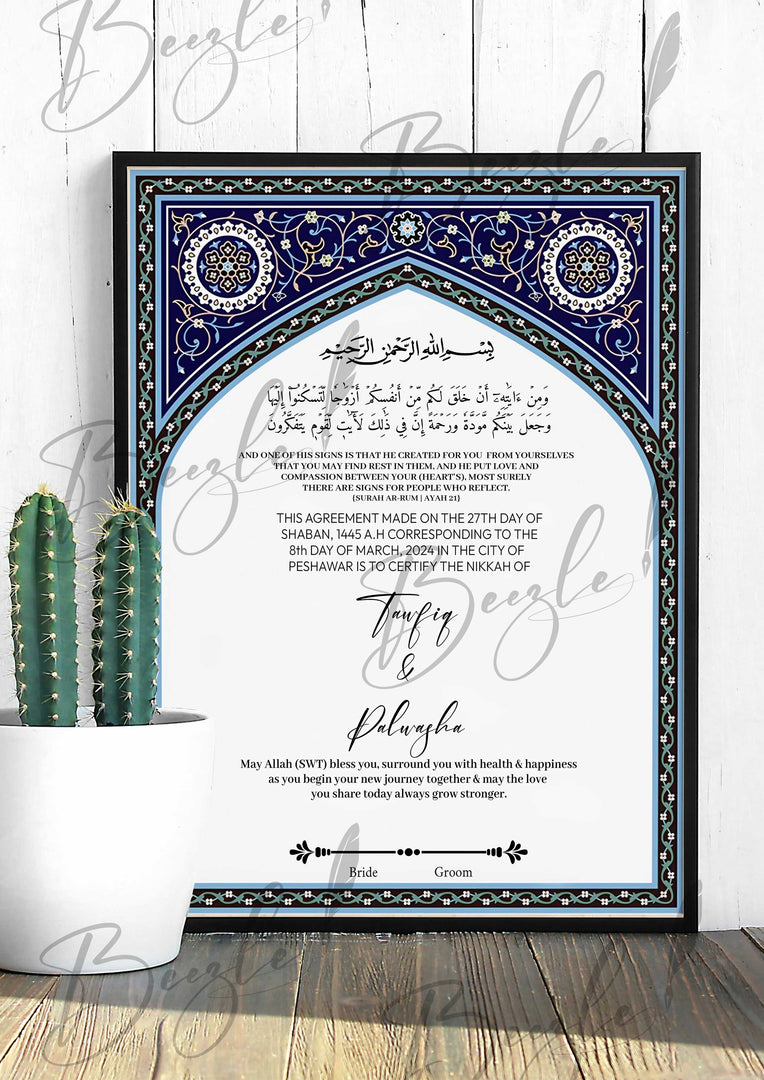 بسم الله الرحمن الرحيم
وَمِنْ ءَايَٰتِهِۦٓ أَنْ خَلَقَ لَكُم مِّنْ أَنفُسِكُمْ أَزْوَٰجًا لِّتَسْكُنُوٓا۟ إِلَيْهَا
وَجَعَلَ بَيْنَكُم مَّوَدَّةً وَرَحْمَةً إِنَّ فِي ذَٰلِكَ لَأَيَٰتٍ لِّقَوْمٍ يَتَفَكَّرُونَ
AND ONE OF HIS SIGNS IS THAT HE CREATED FOR YOU FROM YOURSELVES
THAT YOU MAY FIND REST IN THEM. AND HE PUT LOVE AND
COMPASSION BETWEEN YOUR (HEART'S), MOST SURELY
THERE ARE SIGNS FOR PEOPLE WHO REFLECT.
{SURAH AR-RUM | AYAH 21}
THIS AGREEMENT MADE ON THE 27TH DAY OF
SHABAN, 1445 A.H CORRESPONDING TO THE
8th DAY OF MARCH, 2024 IN THE CITY OF
PESHAWAR IS TO CERTIFY THE NIKKAH OF
Tawfiq
&
Palwasha
May Allah (SWT) bless you, surround you with health & happiness
as you begin your new journey together & may the love
you share today always grow stronger.
Bride Groom
Beezle!
Beezle!
Beezle!
Beezle!
Beezle!
Beezle!